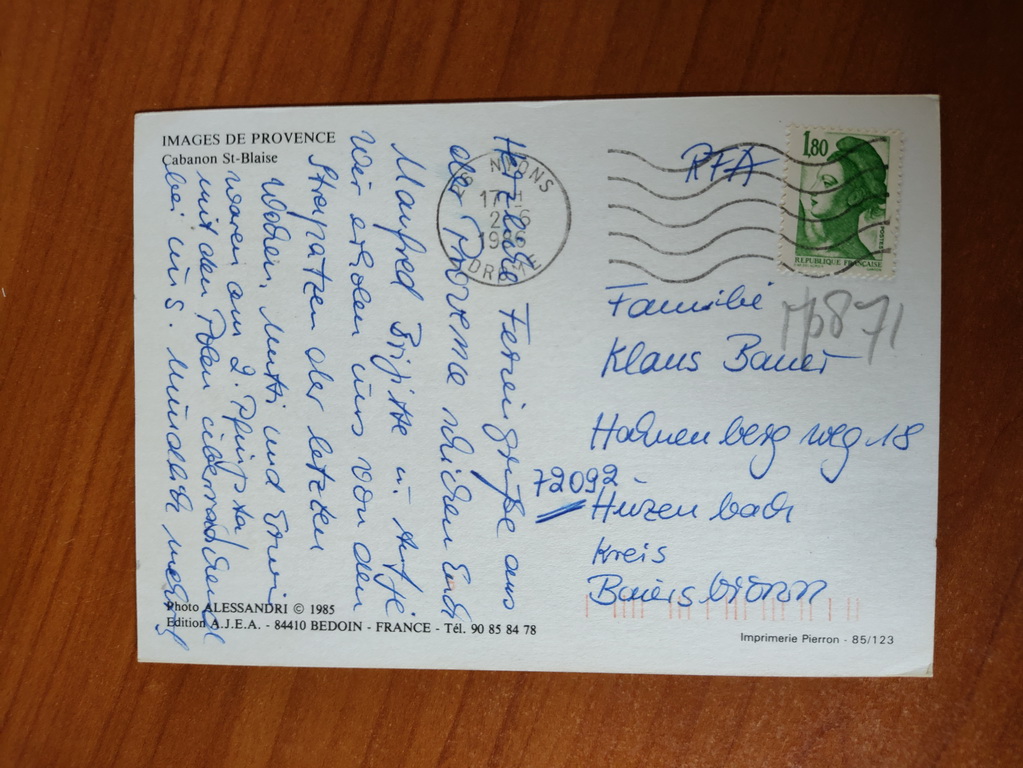 IMAGES DE PROVENCE
Cabanon St-Blaise
Herzliche Feriengrüße aus
der Provence schicken Euch
Manfred Brigitte u. Antje
Wir erholen uns von den
Strapazen der letzten
Wochen, Mutti und Erwin
waren am 2. Pfingstal
mit den Polen überraschend
bei uns. Mündlich mehr
NYONS
17H
2 6
1986
DROME
RFA
1,80
POSTES
REPUBLIQUE FRANÇAISE
Familie
Klaus Bauer
Hahnenbergweg 18
72092
Huzenbach
Kreis
Baiersbronn
Photo ALESSANDRI © 1985
Edition A.J.E.A. - 84410 BEDOIN - FRANCE - Tél. 90 85 84 78
Imprimerie Pierron - 85/123